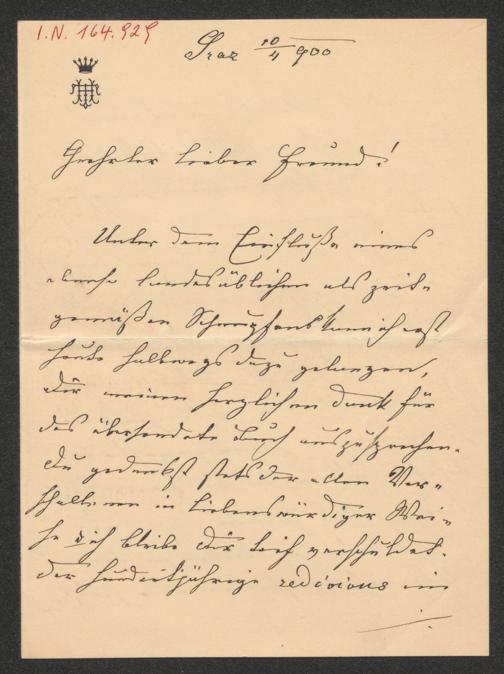 I.N. 164.929
Graz 10/4 900
Geehrter lieber Freund!
Unter dem Einfluße eines
ebenso landesüblichen als zeit-
gemäßen Schnupfens kann ich erst
heute halbwegs dazu gelangen,
Dir meinen herzlichen Dank für
das übersendete Buch auszusprechen.
Du gedenkst stets der alten Ver-
schollenen in liebenswürdiger Wei-
se ich bleibe Dir tief verschuldet.
Der hundertjährige redivivus im